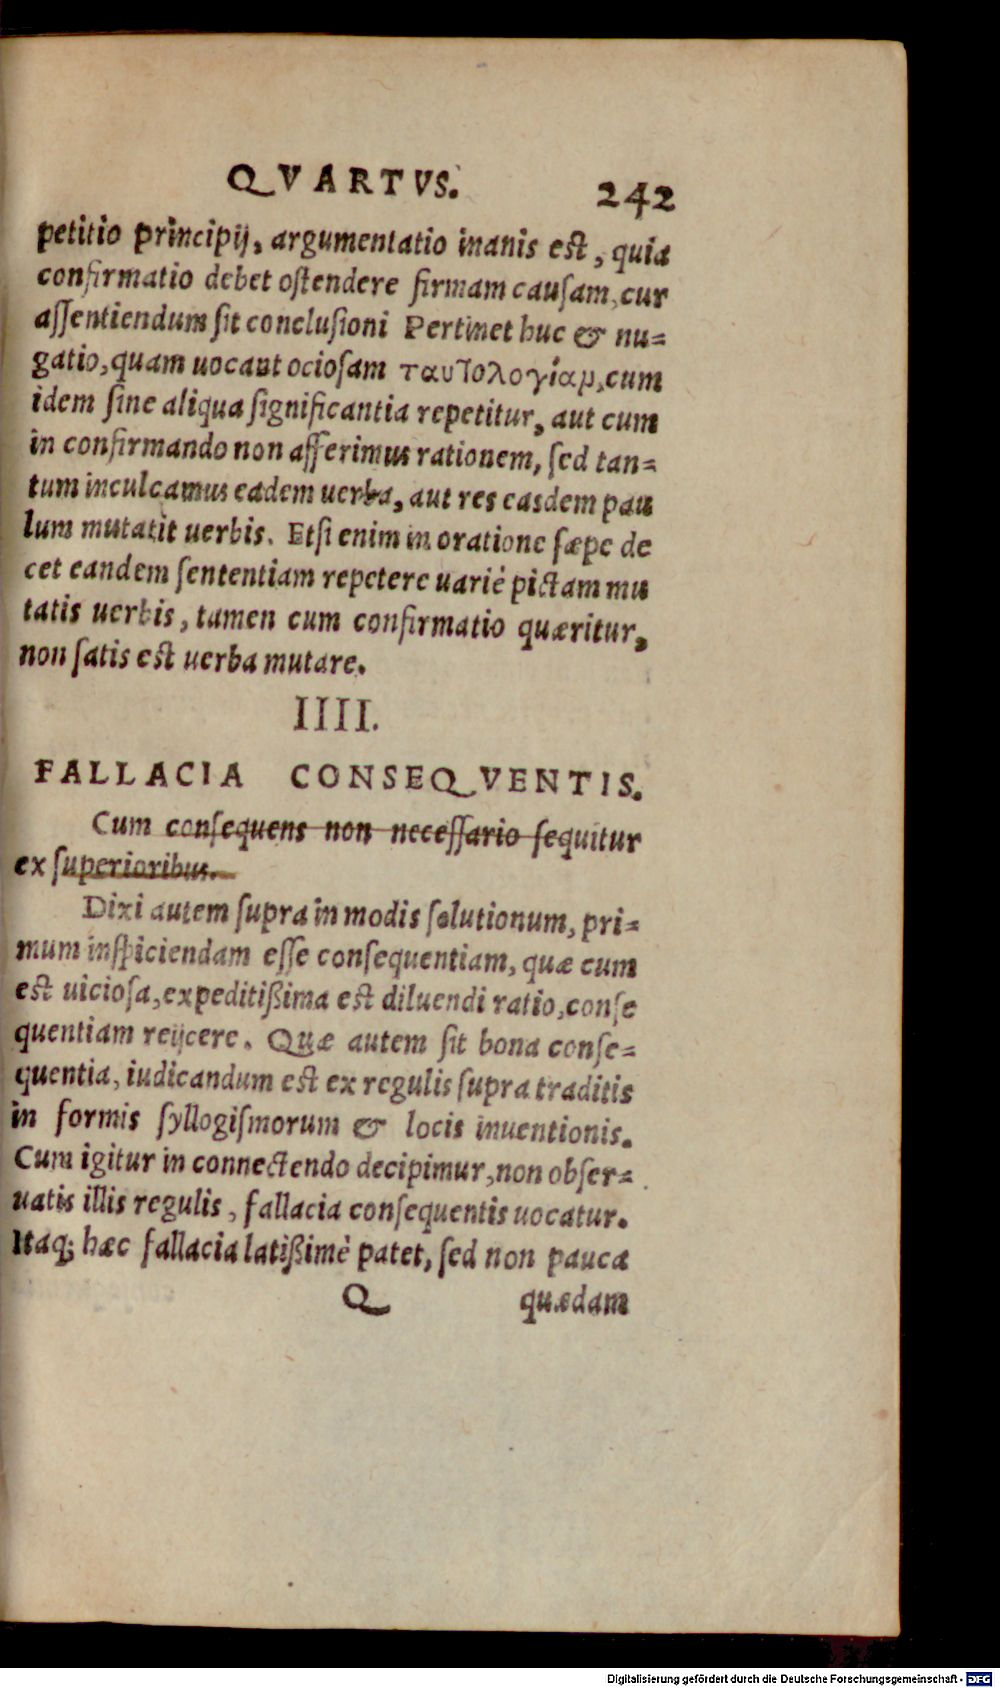 QVARTVS. 242
petitio principij, argumentatio inanis est, quia
confirmatio debet ostendere firmam causam, cur
assentiendum sit conclusioni Pertinet huc & nu=
gatio, quam uocant ociosam ταυτολογίαμ, cum
idem sine aliqua significantia repetitur, aut cum
in confirmando non afferimus rationem, sed tan=
tum inculcamus eadem uerba, aut res easdem pau
lum mutatit uerbis. Etsi enim in oratione sæpe de
cet eandem sententiam repetere uariè pictam mu
tatis uerbis, tamen cum confirmatio quæritur,
non satis est uerba mutare.
IIII.
FALLACIA CONSEQVENTIS.
Cum consequens non necessario sequitur
ex superioribus.
Dixi autem supra in modis solutionum, pri=
mum inspiciendam esse consequentiam, quæ cum
est uiciosa, expeditißima est diluendi ratio, conse
quentiam reijcere. Quæ autem sit bona conse=
quentia, iudicandum est ex regulis supra traditis
in formis syllogismorum & locis inuentionis.
Cum igitur in connectendo decipimur, non obser=
uatis illis regulis, fallacia consequentis uocatur.
Itaq; hæc fallacia latißimè patet, sed non pauca
Q quædam
Digitalisierung gefördert durch die Deutsche Forschungsgemeinschaft - DFG